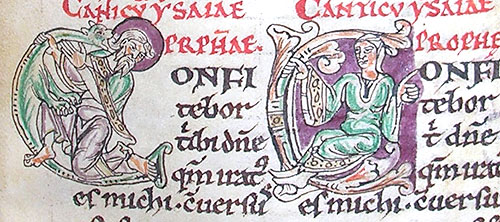 CANTICV YSAIAE
PRPHAE.
CONFI
tebor
tibi dñe
qm̄ irat⁹
es michi. c̄uersu
CANTICV YSAIAE
PROPHE
CONFI
tebor
t̄ dñe
qm̄ irat⁹
es michi. c̄uersu